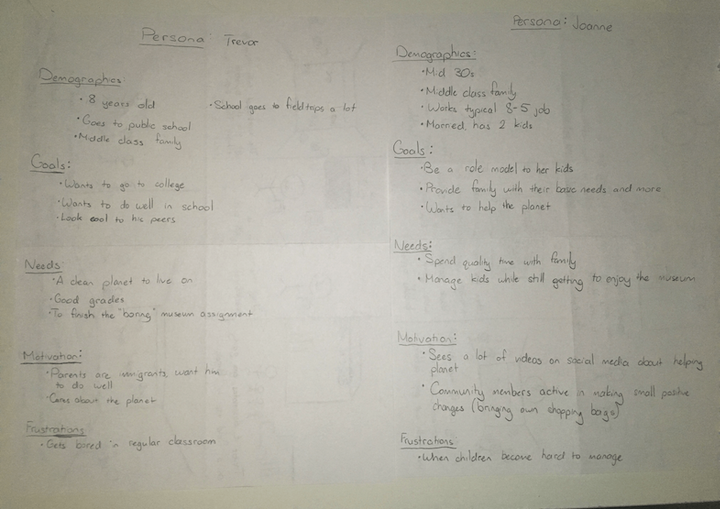 Persona: Trevor
Demographics:
• 8 years old
• School goes to field trips a lot
• Goes to public school
• Middle class family
Goals:
• Wants to go to college
• Wants to do well in school
• Look cool to his peers
Needs
• A clean planet to live on
• Good grades
• To finish the "boring" museum assignment
Motivation:
• Parents are immigrants, want him
to do well
• Cares about the planet
Frustrations
• Gets bored in regular classroom
Persona: Joanne
Demographics:
• Mid 30s
• Middle class family
• Works typical 8-5 job
• Married, has 2 kids
Goals:
• Be a role model to her kids
• Provide family with their basic needs and more
• Wants to help the planet
Needs:
• Spend quality time with family
• Manage kids while still getting to enjoy the museum
Motivation:
• Sees a lot of videos on social media about helping
planet
• Community members active in making small positive
changes (bringing own shopping bags)
Frustrations
• When children become hard to manage